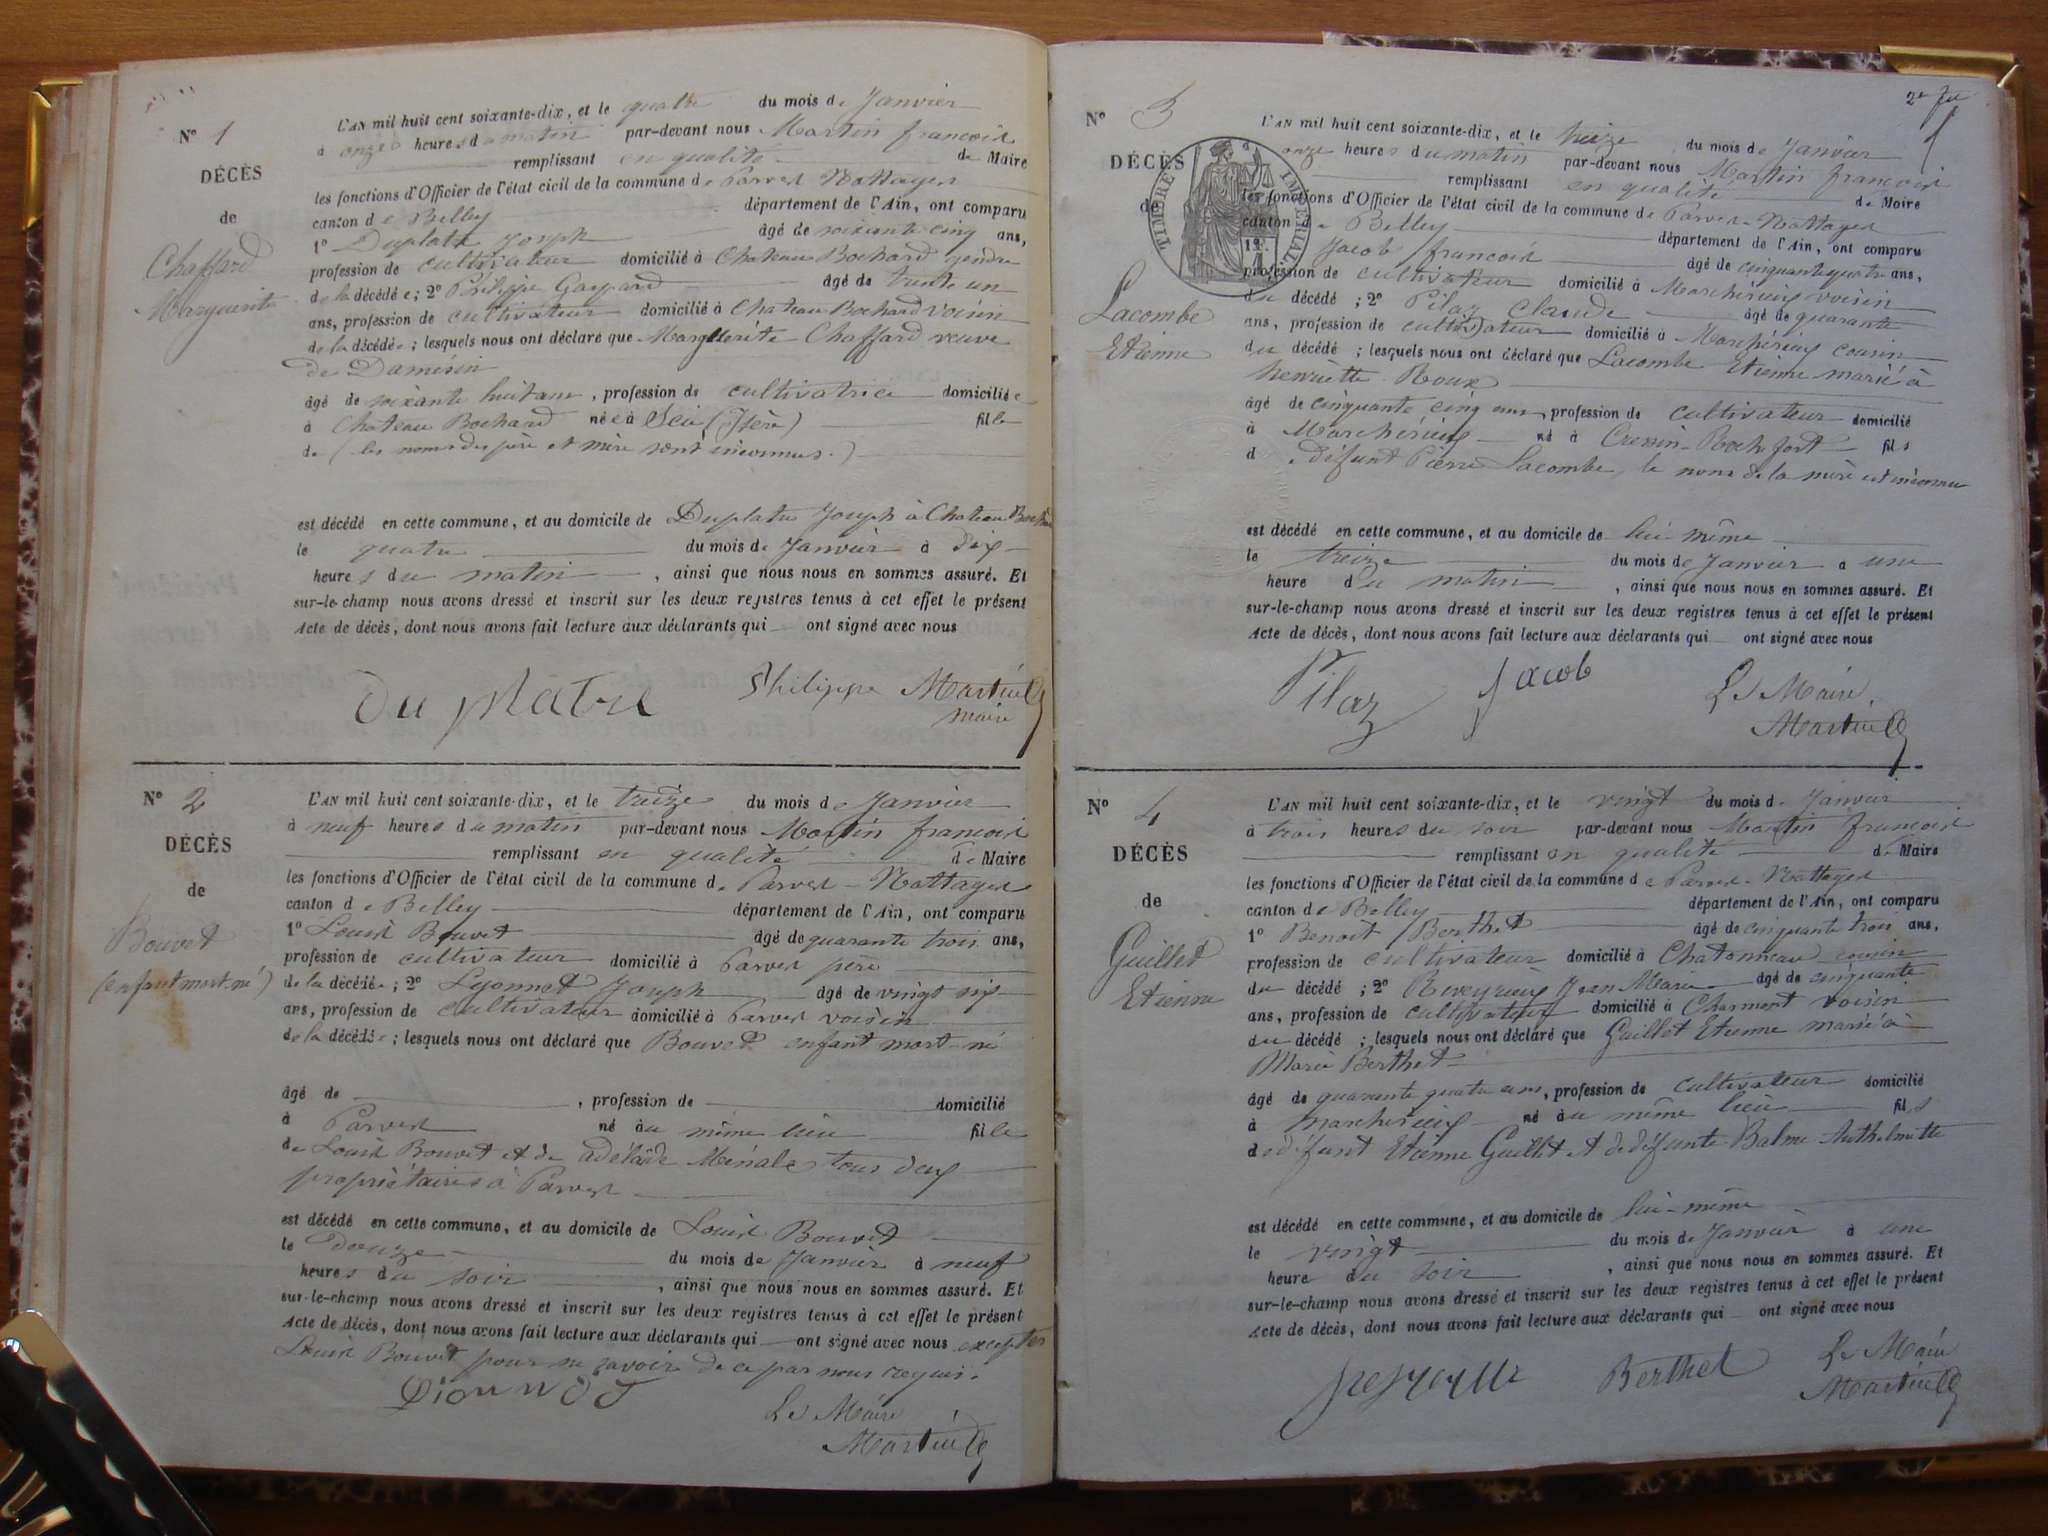 N° 1
DÉCÈS
de
Chaffard
Marguerite
L'AN mil huit cent soixante-dix, et le quatre du mois de Janvier
à onze heures du matin par-devant nous Martin françois
remplissant en qualité de Maire
les fonctions d'Officier de l'état civil de la commune de Parves Nattages
canton de Belley département de l'Ain, ont comparu
1° Duplatre Joseph âgé de soixante cinq ans,
profession de cultivateur domicilié à Chateau Bochard gendre
de la décédée; 2° Philippe Gaspard âgé de trente un
ans, profession de cultivateur domicilié à Chateau Bochard voisin
de la décédée; lesquels nous ont déclaré que Marguerite Chaffard veuve
de Damésin
âgé de soixante huit ans, profession de cultivatrice domiciliée
à Chateau Bochard née à (Isère) fille
de (les noms des père et mère sont inconnus.)
est décédé en cette commune, et au domicile de Duplatre Joseph à Chateau Bochard
le quatre du mois de Janvier à dix
heures du matin, ainsi que nous nous en sommes assuré. Et
sur-le-champ nous avons dressé et inscrit sur les deux registres tenus à cet effet le présent
Acte de décès, dont nous avons fait lecture aux déclarants qui ont signé avec nous
Du platre Philippe Martin
maire
N° 2
DÉCÈS
de
Bouvet
(enfant mort-né)
L'AN mil huit cent soixante-dix, et le treize du mois de Janvier
à neuf heures du matin par-devant nous Martin françois
remplissant en qualité de Maire
les fonctions d'Officier de l'état civil de la commune de Parves-Nattages
canton de Belley département de l'Ain, ont comparu
1° Louis Bouvet âgé de quarante trois ans,
profession de cultivateur domicilié à Parves père
de la décédée; 2° Lyonnet Joseph âgé de vingt six
ans, profession de cultivateur domicilié à Parves voisin
de la décédée; lesquels nous ont déclaré que Bouvet enfant mort-né
âgé de , profession de domicilié
à Parves né au même lieu fille
de Louis Bouvet et de adélaïde tous deux
propriétaires à Parves
est décédé en cette commune, et au domicile de Louis Bouvet
le douze du mois de Janvier à neuf
heures du soir, ainsi que nous nous en sommes assuré. Et
sur-le-champ nous avons dressé et inscrit sur les deux registres tenus à cet effet le présent
Acte de décès, dont nous avons fait lecture aux déclarants qui ont signé avec nous excepter
Louis Bouvet pour ne savoir de ce par nous requis.
Le Maire
Martin
2e
N° 3
TIMBRE IMPÉRIAL
1F.
DÉCÈS
de
Lacombe
Etienne
L'AN mil huit cent soixante-dix, et le treize du mois de Janvier
onze heures du matin par-devant nous Martin françois
remplissant en qualité de Maire
les fonctions d'Officier de l'état civil de la commune de Parves-Nattages
canton de Belley département de l'Ain, ont comparu
Jacob françois âgé de cinquante quatre ans,
profession de cultivateur domicilié à Marchérieux voisin
du décédé; 2° Pilaz Claude âgé de quarante
ans, profession de cultivateur domicilié à Marchérieux cousin
du décédé; lesquels nous ont déclaré que Lacombe Etienne marié à
henriette Roux
âgé de cinquante cinq ans, profession de cultivateur domicilié
à Marchérieux né à Cressin-Rochefort fils
de défunt Pierre Lacombe, le nom de la mère est inconnu
est décédé en cette commune, et au domicile de lui-même
le treize du mois de Janvier à une
heure du matin, ainsi que nous nous en sommes assuré. Et
sur-le-champ nous avons dressé et inscrit sur les deux registres tenus à cet effet le présent
Acte de décès, dont nous avons fait lecture aux déclarants qui ont signé avec nous
Pilaz Jacob Le Maire
Martin
N° 4
DÉCÈS
de
Guillet
Etienne
L'AN mil huit cent soixante-dix, et le vingt du mois de Janvier
à trois heures du soir par-devant nous Martin françois
remplissant en qualité de Maire
les fonctions d'Officier de l'état civil de la commune de Parves-Nattages
canton de Belley département de l'Ain, ont comparu
1° Benoit Berthet âgé de cinquante trois ans,
profession de cultivateur domicilié à Chatonneau cousin
du décédé; 2° Jean Marie âgé de cinquante
ans, profession de cultivateur domicilié à Charmont voisin
du décédé; lesquels nous ont déclaré que Guillet Etienne marié à
Marie Berthet
âgé de quarante quatre ans, profession de cultivateur domicilié
à marchérieux né au même lieu fils
de défunt Etienne Guillet et de défunte Balme Anthelmette
est décédé en cette commune, et au domicile de lui-même
le vingt du mois de Janvier à une
heure du soir, ainsi que nous nous en sommes assuré. Et
sur-le-champ nous avons dressé et inscrit sur les deux registres tenus à cet effet le présent
Acte de décès, dont nous avons fait lecture aux déclarants qui ont signé avec nous
Berthet Le Maire
Martin